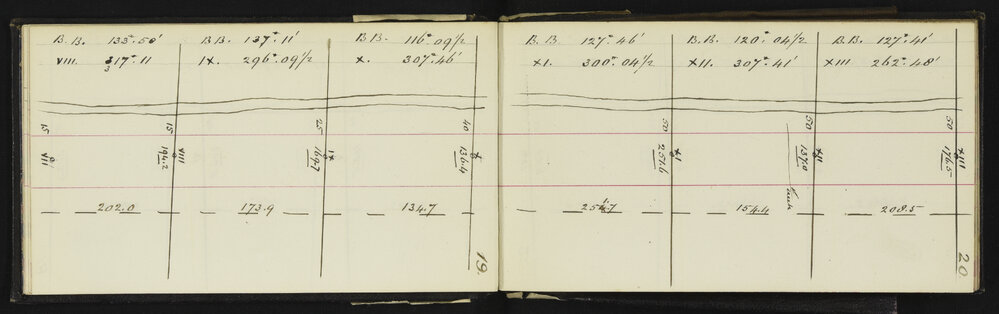 B.B. 135°.50' B.B. 137°.11' B.B. 116°.09½
VIII. 317°.11 IX. 296°.09½ X. 307°.46'
15 15 25 40
VII VIII 194.2 IX 169.7 X 136.4
202.0 173.9 134.7
19.
B.B. 127°.46' B.B. 120°.04½ B.B. 127°.41'
XI. 300°.04½ XII. 307°.41' XIII 262°.48'
50 50 50
XI 251.6 XII 137.0 XIII 176.5
154.4 208.5
20